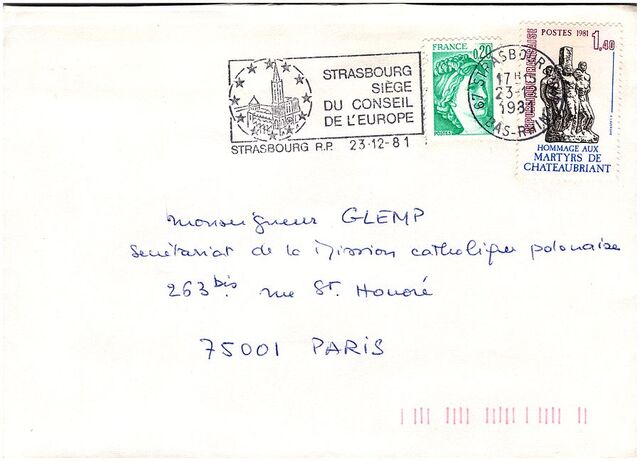 STRASBOURG
SIÈGE
DU CONSEIL
DE L'EUROPE
STRASBOURG R.P. 23-12-81
FRANCE
0,20
POSTES
67 STRASBOURG
17H
23-12
1981
BAS-RHIN
POSTES 1981
1,40
REPUBLIQUE FRANÇAISE
HOMMAGE AUX
MARTYRS DE
CHATEAUBRIANT
Monseigneur GLEMP
Secrétariat de la Mission catholique polonaise
263 bis rue St. Honoré
75001 PARIS